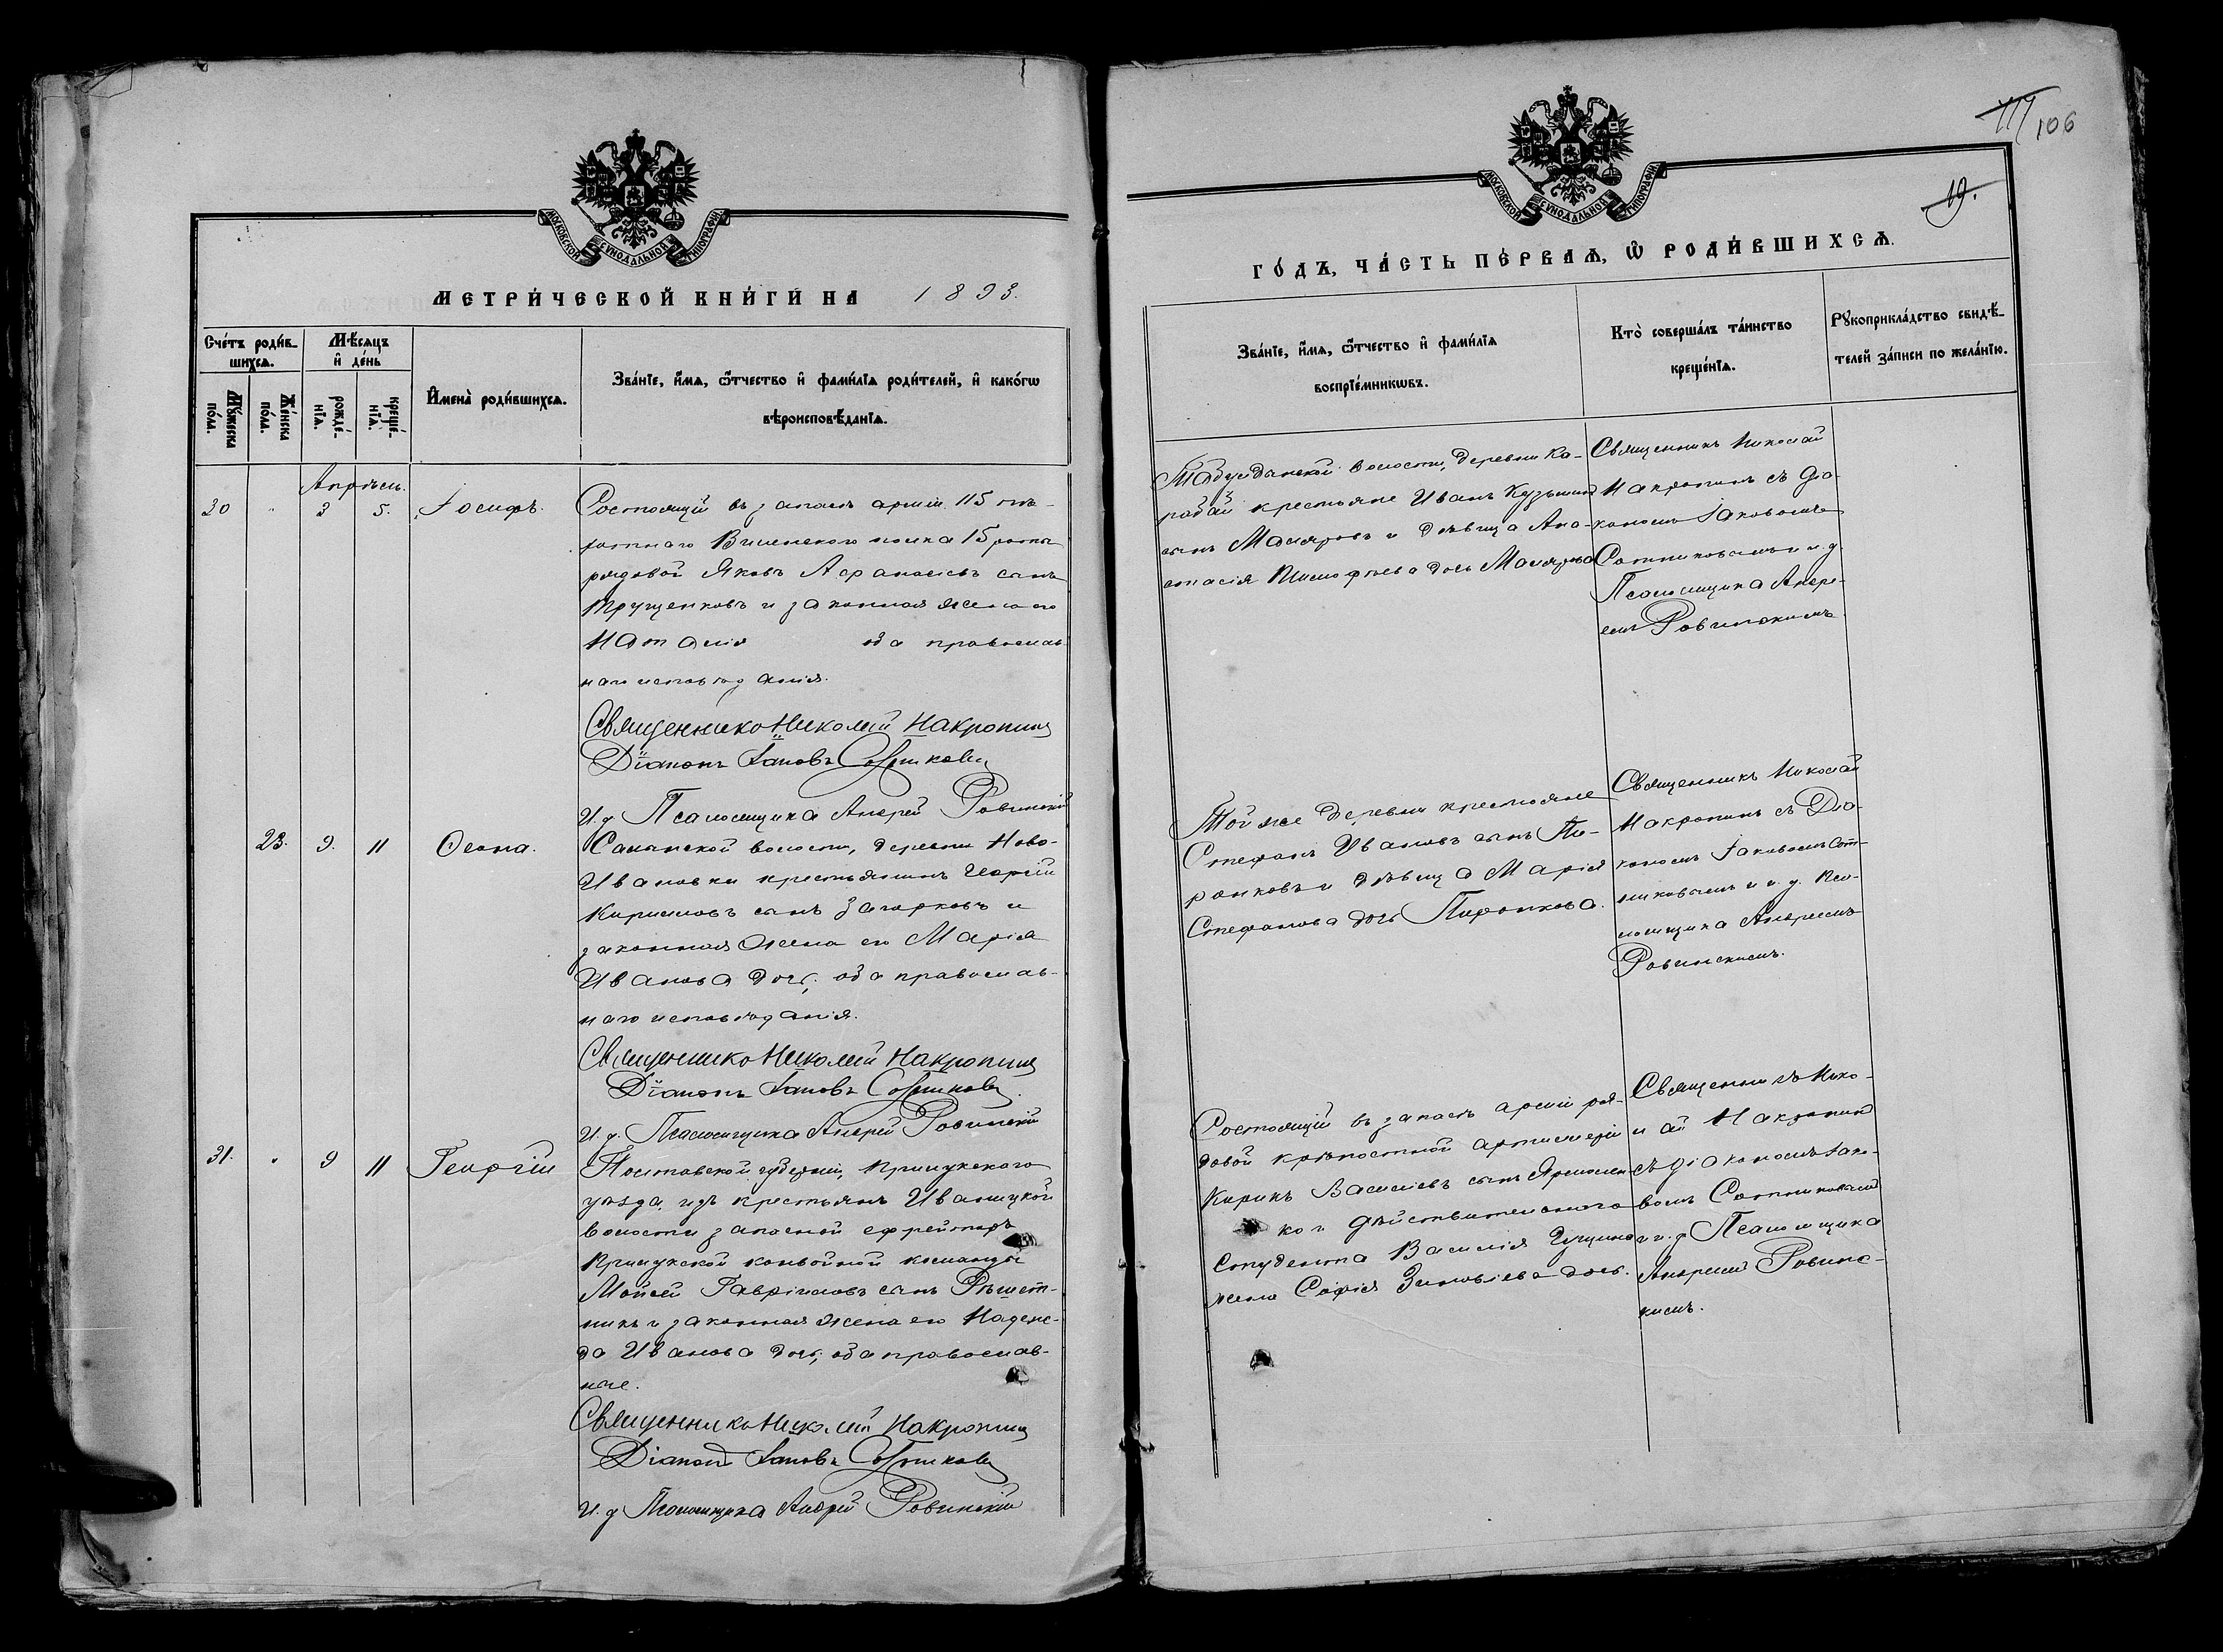 МОСКОВСКОЙ СѴНОДАЛЬНОЙ ТИПОГРАФІИ
МЕТРИ́ЧЕСКОЙ КНИ́ГИ НА 1893.
Сче́тъ роди́в-
шихсѧ.
Мѣ́сѧцъ
и҆ де́нь
Мꙋ́жеска по́ла.
Же́нска по́ла.
рожде́-
нїѧ.
креще́-
нїѧ.
И҆мена̀ роди́вшихсѧ.
Зва́нїе, и҆́мѧ, ѻ҆́тчество и҆ фами́лїѧ роди́телей, и҆ како́гѡ
вѣроисповѣ́данїѧ.
Апрѣль.
30 " 3 5. Іосифъ.
Состоящій въ запасѣ арміи 115 пѣ-
хотнаго Виленскаго полка 15 роты
рядовой Яковъ Афанасіевъ сынъ
Трущенковъ и законная жена его
Наталія оба православ-
наго исповѣданія.
Священникъ Николай Накропинъ
Діаконъ Іаковъ Сотниковъ
И. д. Псаломщика Андрей Ровинскій
23. 9. 11 Оеона.
Салынской волости, деревни Ново-
Ивановки крестьянинъ Георгій
Кириловъ сынъ Загорковъ и
законная жена его Марія
Иванова дочь, оба православ-
наго исповѣданія.
Священникъ Николай Накропинъ
Діаконъ Іаковъ Сотниковъ
И. д. Псаломщика Андрей Ровинскій
31. " 9 11 Георгій
Полтавской губерніи, Прилукскаго
уѣзда, изъ крестьянъ Иваницкой
волости запасной ефрейторъ
Прилукской конвойной команды
Моисей Гавріиловъ сынъ Рѣшет-
никъ и законная жена его Надеж-
да Иванова дочь, оба православ-
ные.
Священникъ Николай Накропинъ
Діаконъ Іаковъ Сотниковъ
И. д. Псаломщика Андрей Ровинскій
106
19.
МОСКОВСКОЙ СѴНОДАЛЬНОЙ ТИПОГРАФІИ
ГО́ДЪ, ЧА́СТЬ ПЕ́РВАѦ, Ѡ҆ РОДИ́ВШИХСѦ.
Зва́нїе, и҆́мѧ, ѻ҆́тчество и҆ фами́лїѧ
воспрїе́мникѡвъ.
Кто̀ соверша́лъ та́инство
креще́нїѧ.
Рꙋкоприкла́дство свидѣ́-
телей за́писи по жела́нїю.
Табулдинской волости, деревни Ка-
рабай крестьяне Иванъ Кузьминъ
сынъ Маляровъ и дѣвица Ана-
стасія Тимофѣева дочь Малярова
Священникъ Николай
Накропинъ съ діа-
кономъ Іаковомъ
Сотниковымъ и и. д.
Псаломщика Андре-
емъ Ровинскимъ
Той же деревни крестьяне
Стефанъ Ивановъ сынъ Пи-
ронковъ и дѣвица Марія
Стефанова дочь Пиронкова.
Священникъ Николай
Накропинъ съ Діа-
кономъ Іаковомъ Сот-
никовымъ и и. д. Пса-
ломщика Андреемъ
Ровинскимъ.
Состоящій въ запасѣ арміи ря-
довой крѣпостной артиллеріи
Кирикъ Василіевъ сынъ Ярмолен-
ко и дѣйствительнаго
студента Василія Гущина
жена Софія Зиновіева дочь.
Священникъ Нико-
лай Накропинъ
съ діакономъ Іако-
вомъ Сотниковымъ
и и. д. Псаломщика
Андреемъ Ровинс-
кимъ.